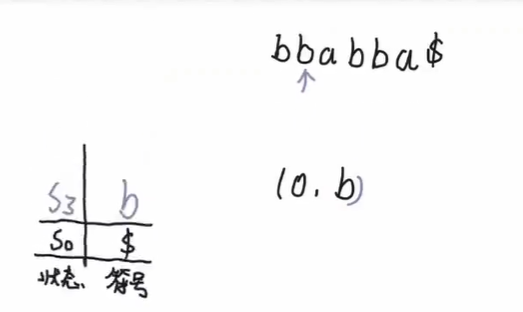 bbabba$
↑
(0, b)
S3 b
S0 $
状态 符号